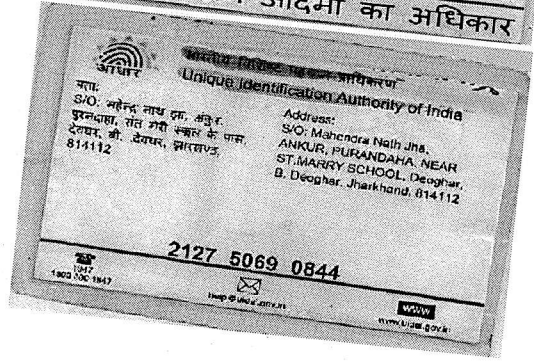 आदमी का अधिकार
आधार
भारतीय विशिष्ट पहचान प्राधिकरण
Unique Identification Authority of India
पता:
S/O: महेन्द्र नाथ झा, अंकुर,
पुरनदाहा, संत मेरी स्कूल के पास,
देवघर, बी. देवघर, झारखण्ड,
814112
Address:
S/O: Mahendra Nath Jha,
ANKUR, PURANDAHA, NEAR
ST.MARRY SCHOOL, Deoghar,
B. Deoghar, Jharkhand, 814112
2127 5069 0844
1947
1800 300 1947
WWW
www.uidai.gov.in